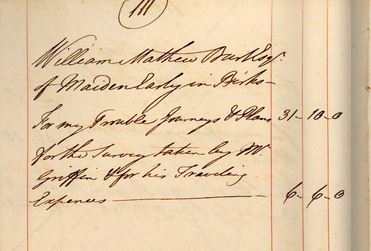 111
William Mathew Burt Esqr.
of Maiden Early in Birks—
For my Trouble Journeys & Plans 31-10-0
for the Survey taken by Mr.
Griffin & for his Traveling
Expences 6-6-0